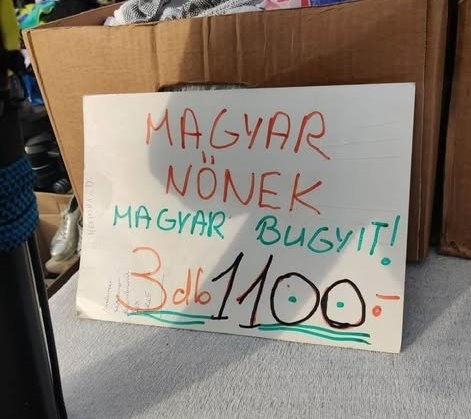 MAGYAR
NŐNEK
MAGYAR BUGYIT!
3db 1100.-